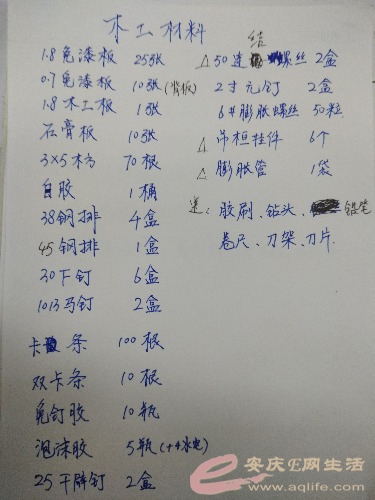 木工材料
1.8免漆板 25张
0.9免漆板 10张(背板)
1.8木工板 1张
石膏板 10张
3×5木方 70根
白胶 1桶
38钢排 4盒
45钢排 1盒
30F钉 6盒
1013马钉 2盒
卡条 100根
双卡条 10根
免钉胶 10瓶
泡沫胶 5瓶
25干壁钉 2盒
结
△50速螺丝 2盒
2寸元钉 2盒
6#膨胀螺丝 50粒
△吊柜挂件 6个
△膨胀管 1袋
送:胶刷、钻头、铅笔
卷尺、刀架、刀片.
安庆E网生活
www.aqlife.com